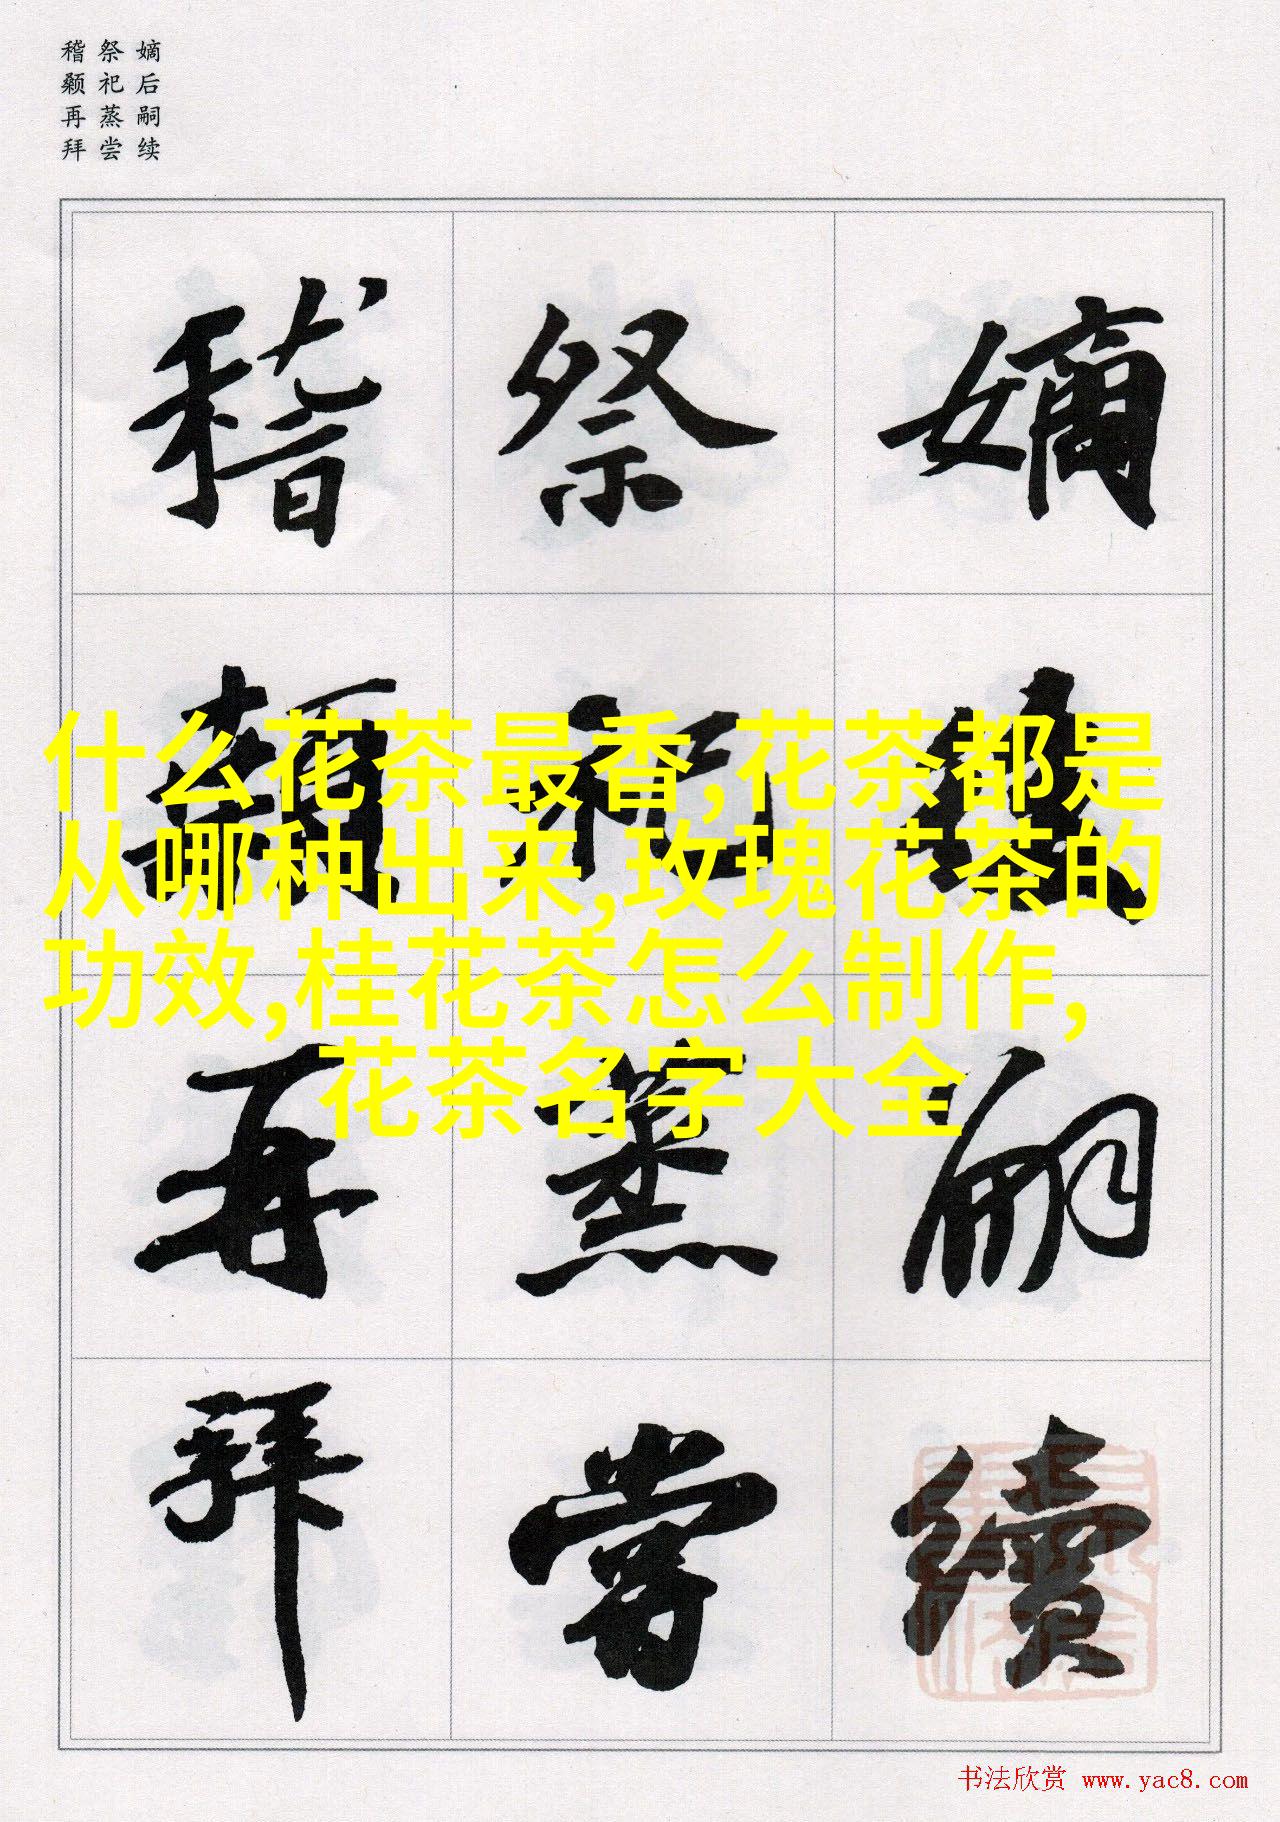 嫡后嗣续
祭祀蒸尝
稽颡再拜
嫡后嗣續
祭祀蒸嘗
稽顙再拜
什么花茶最香,花茶都是
从哪种出来,玫瑰花茶的
功效,桂花茶怎么制作,
花茶名字大全
书法欣赏 www.yac8.com